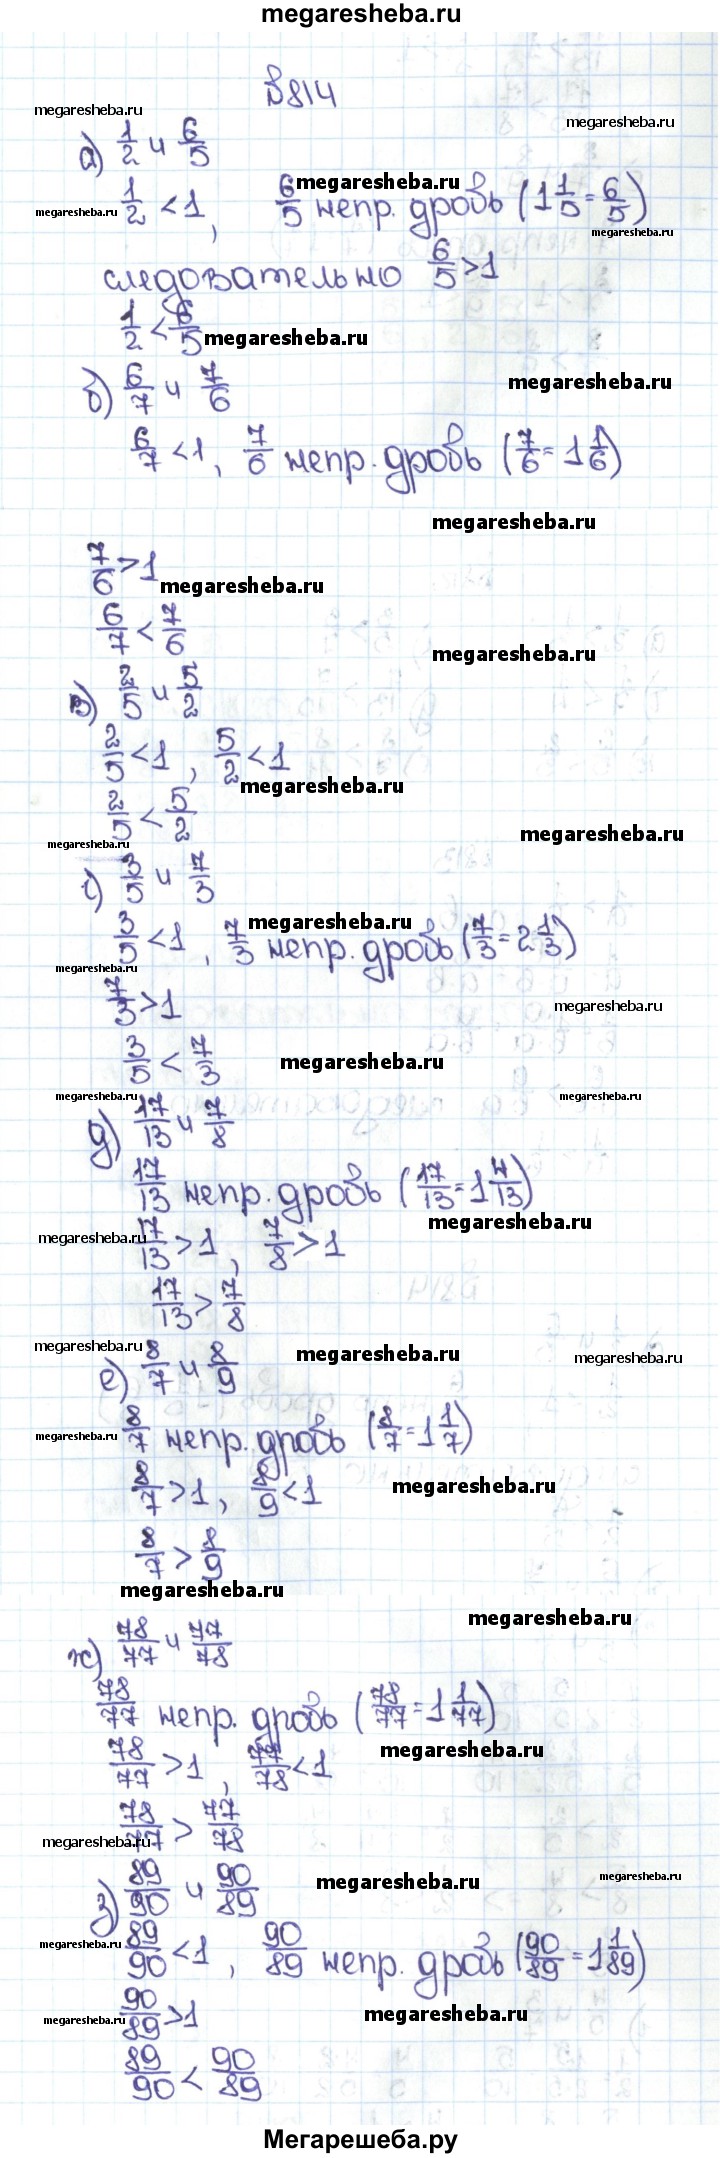 megaresheba.ru
В814
megaresheba.ru megaresheba.ru
а) 1/2 и 6/5
megaresheba.ru
1/2 < 1, 6/5 непр. дробь (1 1/5 = 6/5)
megaresheba.ru megaresheba.ru
следовательно 6/5 > 1
1/2 < 6/5
megaresheba.ru
б) 6/7 и 7/6
megaresheba.ru
6/7 < 1, 7/6 непр. дробь (7/6 = 1 1/6)
megaresheba.ru
7/6 > 1
megaresheba.ru
6/7 < 7/6
megaresheba.ru
в) 2/5 и 5/2
2/5 < 1, 5/2 < 1
megaresheba.ru
2/5 < 5/2
megaresheba.ru
megaresheba.ru
г) 3/5 и 7/3
megaresheba.ru
3/5 < 1, 7/3 непр. дробь (7/3 = 2 1/3)
megaresheba.ru
7/3 > 1
megaresheba.ru
3/5 < 7/3
megaresheba.ru
megaresheba.ru megaresheba.ru
д) 17/13 и 7/8
17/13 непр. дробь (17/13 = 1 4/13)
megaresheba.ru
megaresheba.ru
17/13 > 1, 7/8 > 1
17/13 > 7/8
megaresheba.ru megaresheba.ru megaresheba.ru
е) 8/7 и 8/9
megaresheba.ru
8/7 непр. дробь (8/7 = 1 1/7)
8/7 > 1, 8/9 < 1
megaresheba.ru
8/7 > 8/9
megaresheba.ru
megaresheba.ru
ж) 78/77 и 77/78
78/77 непр. дробь (78/77 = 1 1/77)
megaresheba.ru
78/77 > 1, 77/78 < 1
78/77 > 77/78
megaresheba.ru
з) 89/90 и 90/89
megaresheba.ru megaresheba.ru
megaresheba.ru
89/90 < 1, 90/89 непр. дробь (90/89 = 1 1/89)
90/89 > 1
megaresheba.ru megaresheba.ru
89/90 < 90/89
Мегарешеба.ру